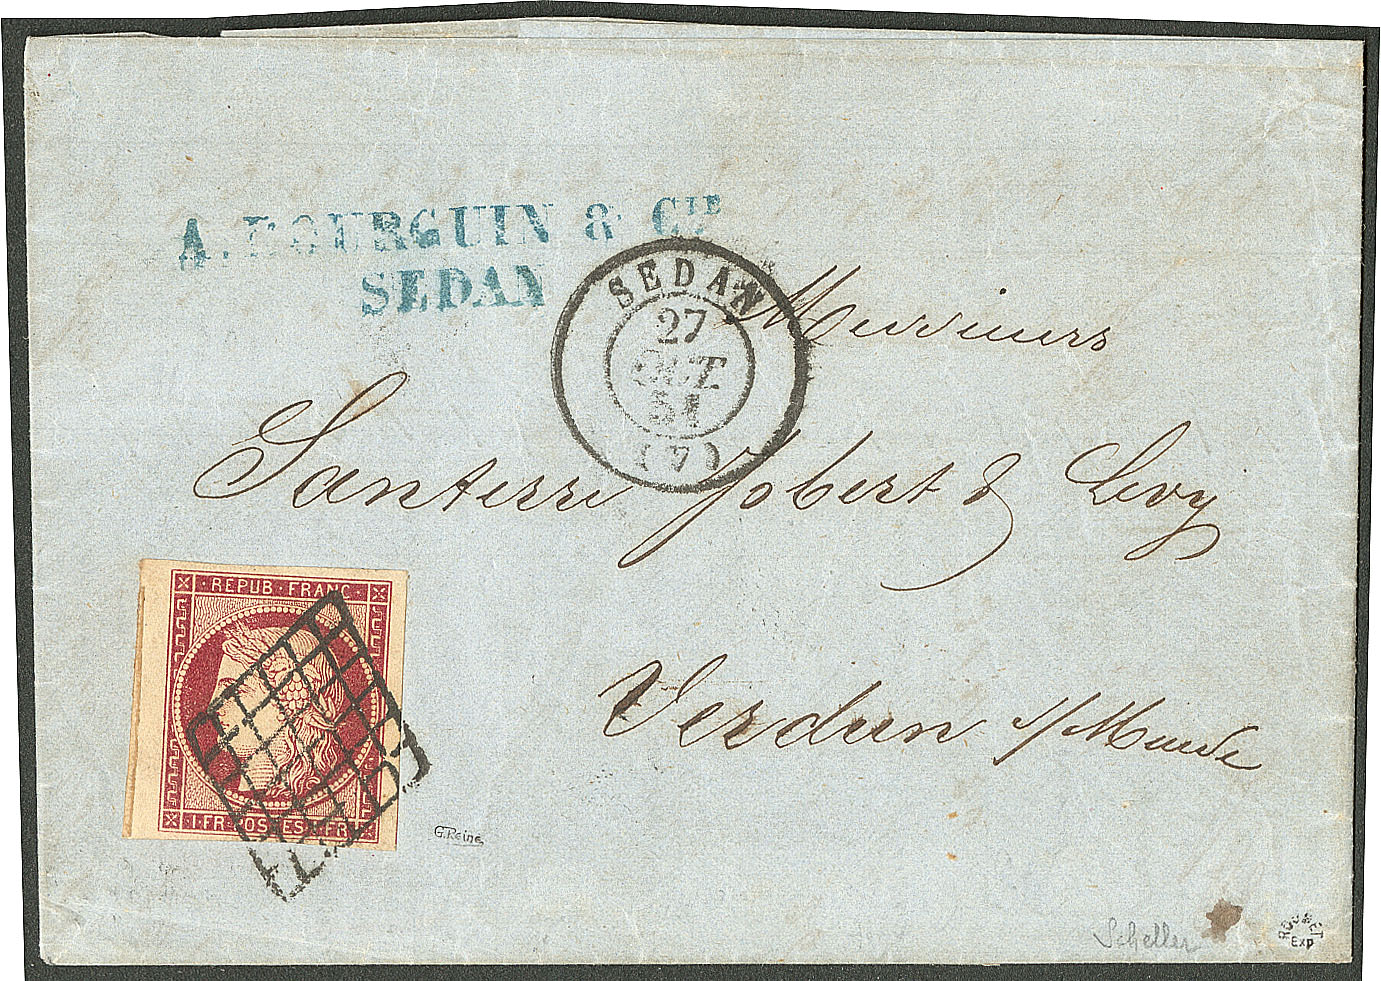 A. BOURGUIN & CIE
SEDAN
SEDAN
27
OCT.
51
(7)
Messieurs
Santerre Jobert & Levy
Verdun s/Meuse
REPUB · FRANC ·
· 1 · FR · POSTES · 1 · FR ·
G.Reine
Scheller
ROUMET
Exp